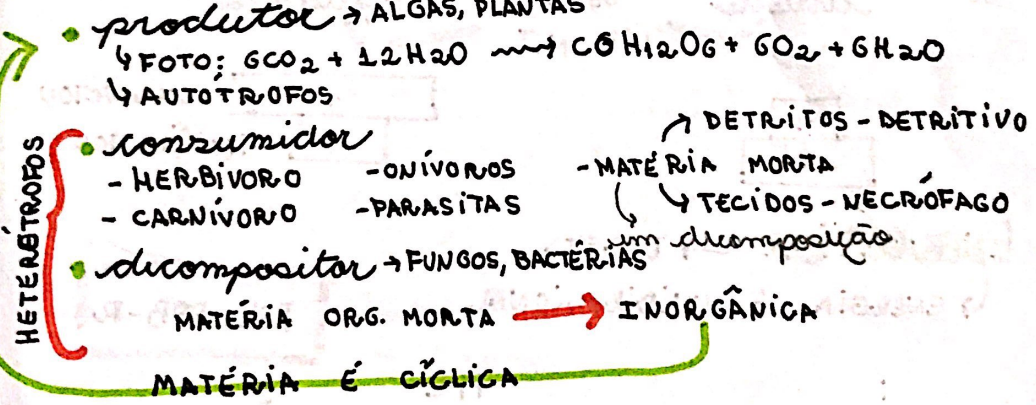 • produtor → ALGAS, PLANTAS
↳ FOTO: 6CO2 + 12H2O ⟿ C6H12O6 + 6O2 + 6H2O
↳ AUTÓTROFOS
HETERÓTROFOS
• consumidor
- HERBÍVORO - ONÍVOROS - MATÉRIA MORTA
- CARNÍVORO - PARASITAS
↗ DETRITOS - DETRITIVO
↘ TECIDOS - NECRÓFAGO
↳ em decomposição
• decompositor → FUNGOS, BACTÉRIAS
MATÉRIA ORG. MORTA → INORGÂNICA
MATÉRIA É CÍCLICA